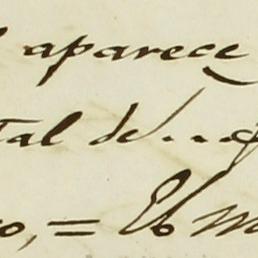 aparece
tal de
o, = Eb m